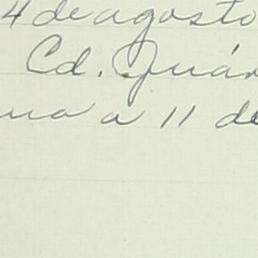 4 de agosto
Cd. Juár
ua a 11 de